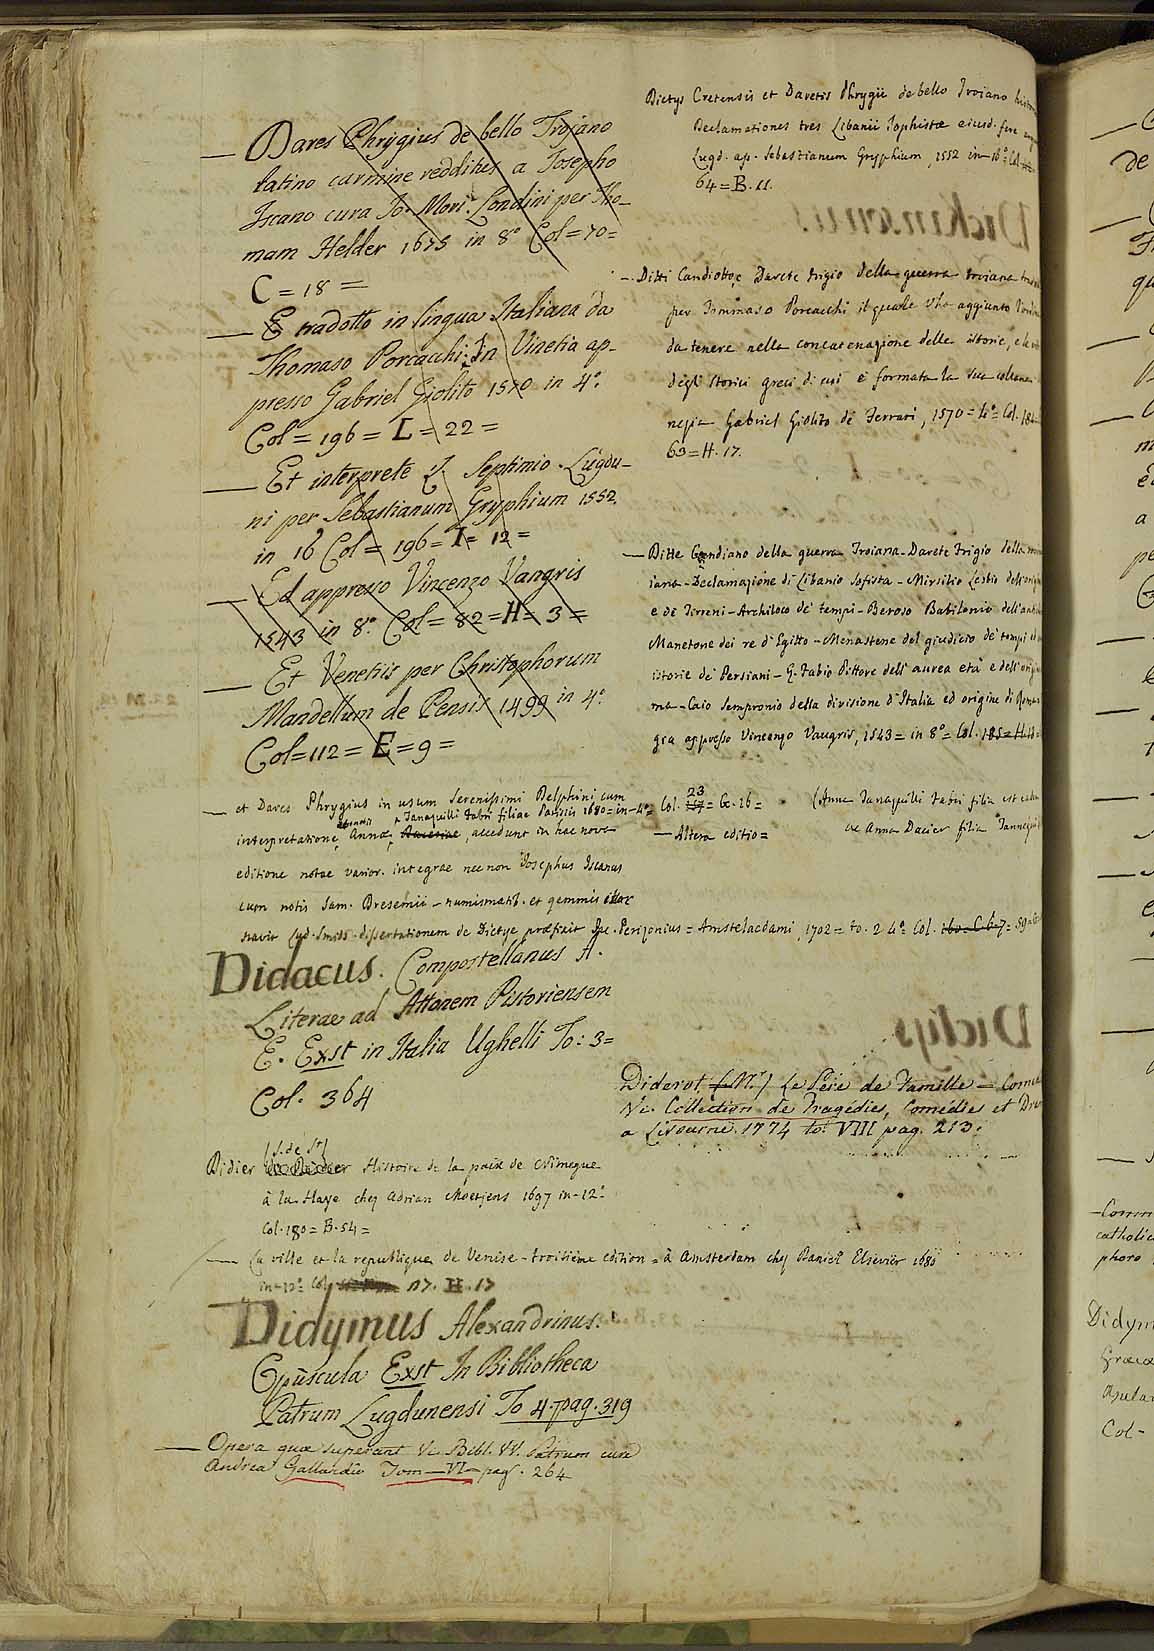 — Dares Phrygius de bello Trojano
latino carmine redditus a Josepho
Iscano cura Jo. Mori. Londini per Tho-
mam Helder 1675 in 8º Col = 70 =
C = 18 =
— E tradotto in lingua Italiana da
Thomaso Porcacchi: In Vinetia ap-
presso Gabriel Giolito 1570 in 4º.
Col = 196 = L = 22 =
— Et interprete Septimio. Lugdu-
ni per Sebastianum Gryphium 1552.
in 16 Col = 196 = I = 12 =
— Ed appresso Vincenzo Vangris
1543 in 8º. Col = 82 = H = 3 =
— Et Venetiis per Christophorum
Mandellum de Pensis 1499 in 4º.
Col = 112 = E = 9 =
— et Dares Phrygius in usum Serenissimi Delphini cum
interpretatione Annæ Tanaquilli Fabri filiae Parisiis 1680 = in-4º = Col. 23 = G. 26 =
accedunt in hac nova
editione notae varior. integrae nec non Josephus Iscanus
cum notis Sam. Dresemii - numismatib. et gemmis illus
travit Lud. Smids. dissertationem de Dictye præfixit Jac. Perizonius = Amstelaedami, 1702 = to. 2 4º = Col.
Didacus. Compostellanus A.
Literae ad Attonem Pistoriensem
E. Exst in Italia Ughelli To: 3 =
Col. 364
(S. de St)
Didier Histoire de la paix de Nimegue
à la Haye chez Adrian Moetjens 1697 in-12º
Col. 180 = B. 54 =
— La ville et la republique de Venise - troisième edition = à Amsterdam chez Daniel Elsevier 1680
in-12º Col. 117. H. 17
Didymus Alexandrinus.
Opuscula Exst In Bibliotheca
Patrum Lugdunensi To 4. pag. 319
— Opera quæ supersunt Vc. Bibl. VV. Patrum cura
Andreæ Gallandio Tom — VI — pag. 264
Dictys Cretensis et Daretis Phrygii de bello Troiano
Declamationes tres Libanii Sophistæ eiusd. fere
Lugd. ap. Sebastianum Gryphium, 1552 in-16º Col
64 = B. 11.
— Ditti Candiotto, e Darete frigio della guerra troiana
per Tommaso Porcacchi il quale v'ha aggiunto
da tenere nella concatenazione delle istorie, e le
degli Storici greci di cui è formata la sua collana
negia Gabriel Giolito de Ferrari, 1570 = 4º = Col.
63 = H. 17.
— Ditte Candiano della guerra Troiana - Darete frigio della
iana - Declamazione di Libanio Sofista - Mirsilio Lesbio dell'
e de Tirreni - Archiloco de' tempi - Beroso Babilonio dell'
Manetone dei re d'Egitto - Menastene del giudicio de' tempi
istorie de' Persiani - Q. Fabio Pittore dell'aurea età e dell'
ma - Caio Sempronio della divisione d'Italia ed origine di Roma
gia appresso Vincenzo Vaugris, 1543 = in 8º = Col. 185 = H.
(Anna Tanaquilli Fabri filia est
— Altera editio =
ac Anna Dacier filia
Diderot (Mr) Le Père de Famille —
Vc. Collection de Tragédies, Comédies et
a Livourne. 1774 to: VIII pag. 213.